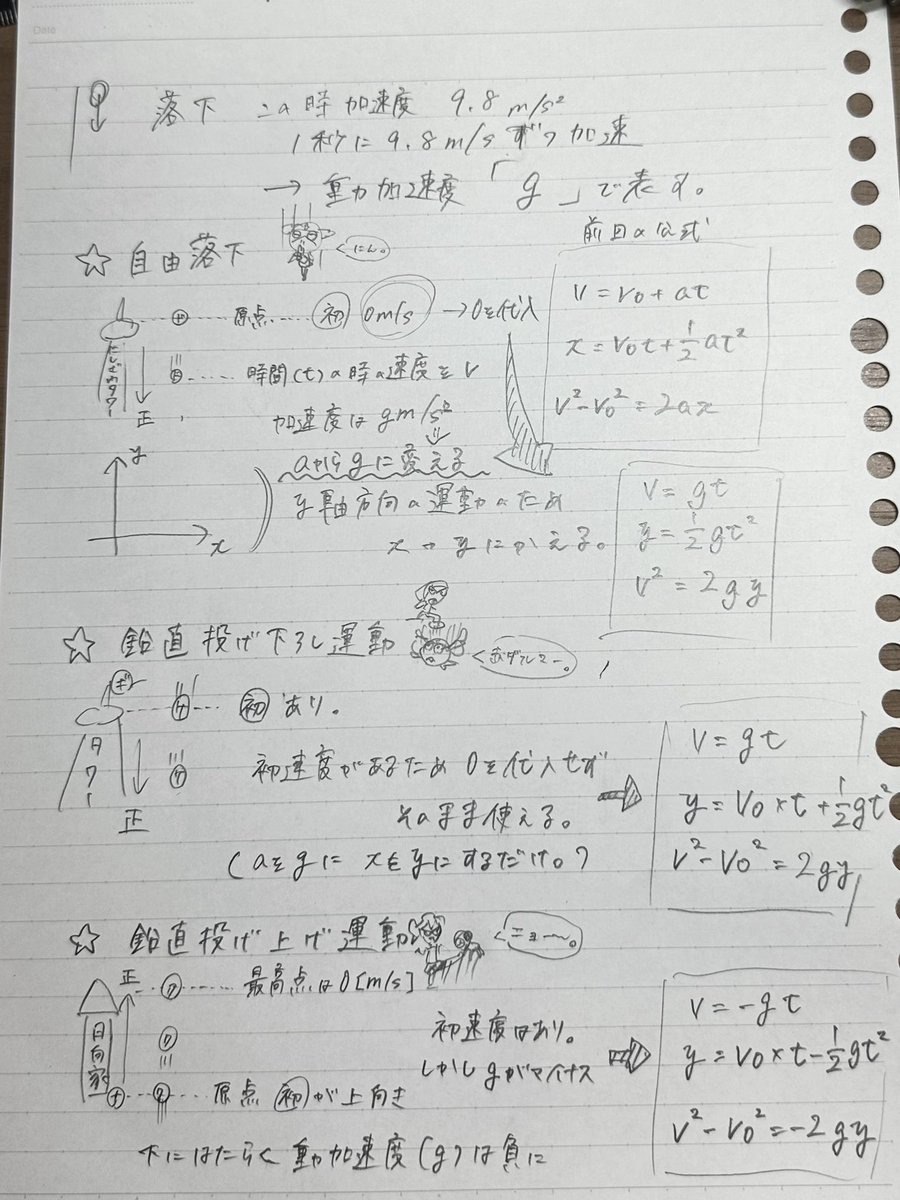 Date
落下 この時加速度 9.8 m/s²
1秒に9.8m/sずつ加速
→ 重力加速度「g」で表す。
☆ 自由落下
にん。
前回の公式
v = v₀ + at
x = v₀t + 1/2 at²
v² - v₀² = 2ax
原点……初 0m/s → 0を代入
時間(t)の時の速度をv
正
加速度はg m/s²
aからgに変える
y
x
y軸方向の運動のため
x→yにかえる。
v = gt
y = 1/2 gt²
v² = 2gy
☆ 鉛直投げ下ろし運動
初あり。
タワー
正
初速度があるため0を代入せず
そのまま使える。
(aをgに xをyにするだけ。)
v = gt
y = v₀×t + 1/2 gt²
v² - v₀² = 2gy
☆ 鉛直投げ上げ運動
ニョ〜。
正
最高点は0[m/s]
日向家
初速度はあり。
しかしgがマイナス
原点 初が上向き
下にはたらく重力加速度(g)は負に
v = -gt
y = v₀×t - 1/2 gt²
v² - v₀² = -2gy